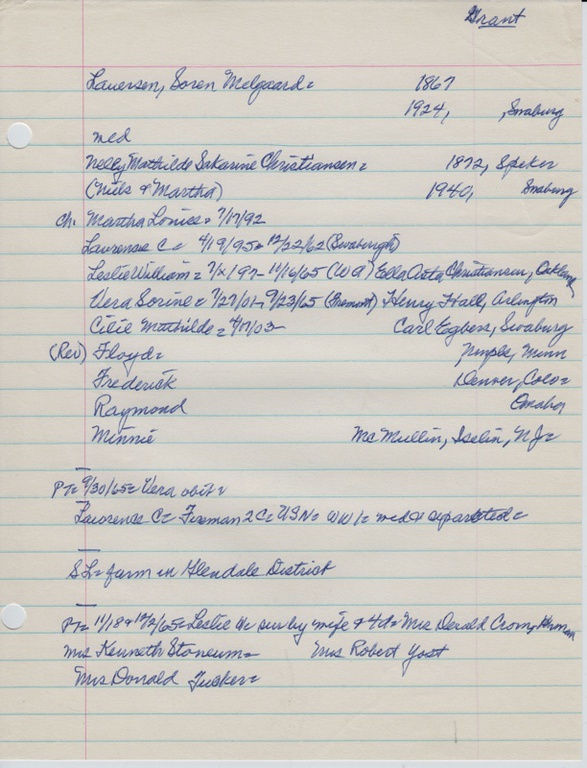 Grant
Lauersen, Soren Melgaard = 1867
1924, Swaburg
med
Nelly Mathilde Sakarine Christiansen = 1872, Speker
(Niels & Martha) 1940, Swaburg
Ch. Martha Louise = 7/17/92
Laurense C = 4/19/95 = 12/22/62 (Swaburg)
Leslie William = 197 - 11/16/65 (W 9) Ella Asta Christiansen, Oakland
Vera Sorine = 7/27/01 - 9/23/65 (Fremont) Henry Hall, Arlington
Cilie Mathilde = 4/17/03 - Carl Egbers, Swaburg
(Rev) Floyd = Temple, Minn
Frederick Denver, Colo =
Raymond Omaha
Minnie Mc Mullin, Iselin, N J =
PT = 9/30/65 = Vera obit =
Lawrence C = Fireman 2 C = USN = WW 1 = med & separated =
SL = farm in Glendale District
PT = 11/18 & 12/2/65 = Leslie W = sur by wife & 4 d = Mrs Derald Crom, Herman
Mrs Kenneth Stoneum = Mrs Robert Yost
Mrs Donald Tucker =